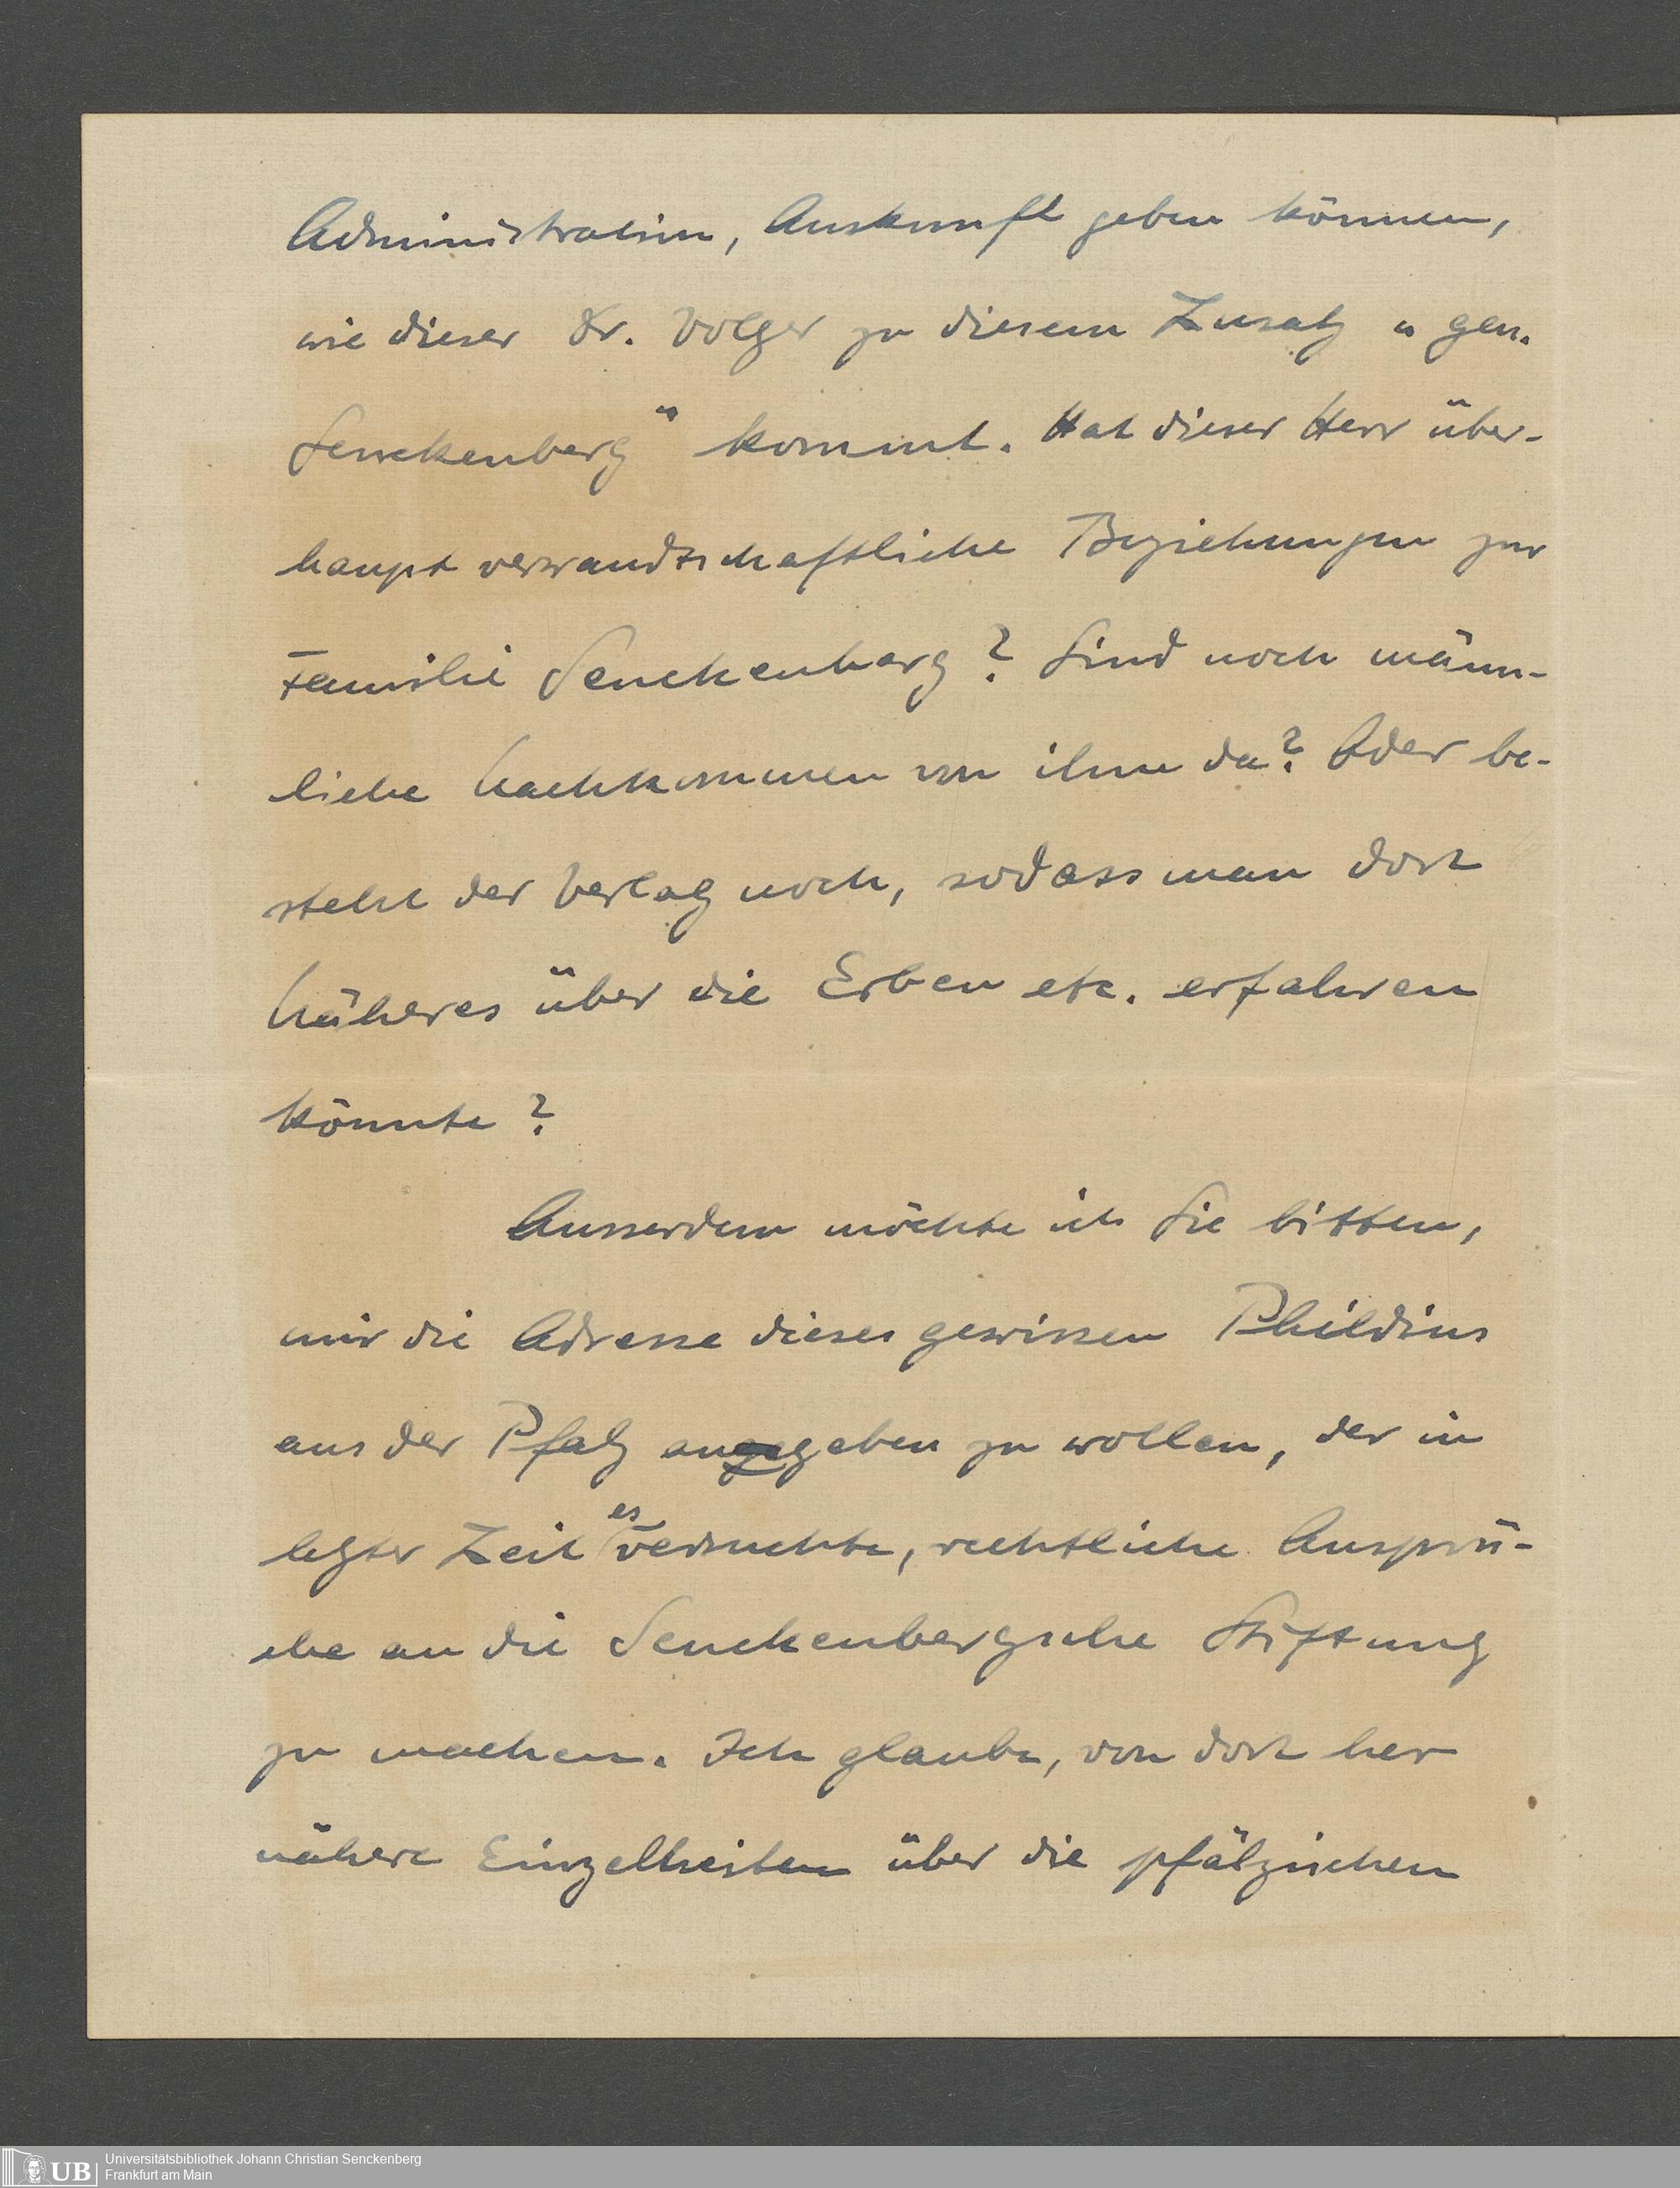 Administration, Auskunft geben können,
wie dieser Dr. Volger zu diesem Zusatz „gen.
Senckenberg" kommt. Hat dieser Herr über-
haupt verwandtschaftliche Beziehungen zur
Familie Senckenberg? Sind noch männ-
liche Nachkommen von ihm da? Oder be-
steht der Verlag noch, sodass man dort
Näheres über die Erben etc. erfahren
könnte?
Ausserdem möchte ich Sie bitten,
mir die Adresse dieses gewissen Phildius
aus der Pfalz angeben zu wollen, der in
letzter Zeit es versuchte, rechtliche Ansprü-
che an die Senckenbergsche Stiftung
zu machen. Ich glaube, von dort her
nähere Einzelheiten über die pfälzischen
Universitätsbibliothek Johann Christian Senckenberg
Frankfurt am Main
UB